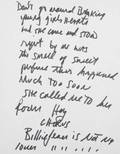 Don't go around Breaking
young girls hearts
but she came and stood
right by me was
the smell of sweet
perfume this happened
much too soon
she called me to her
Room Hey
CHORUS
Billie Jean is not my
lover